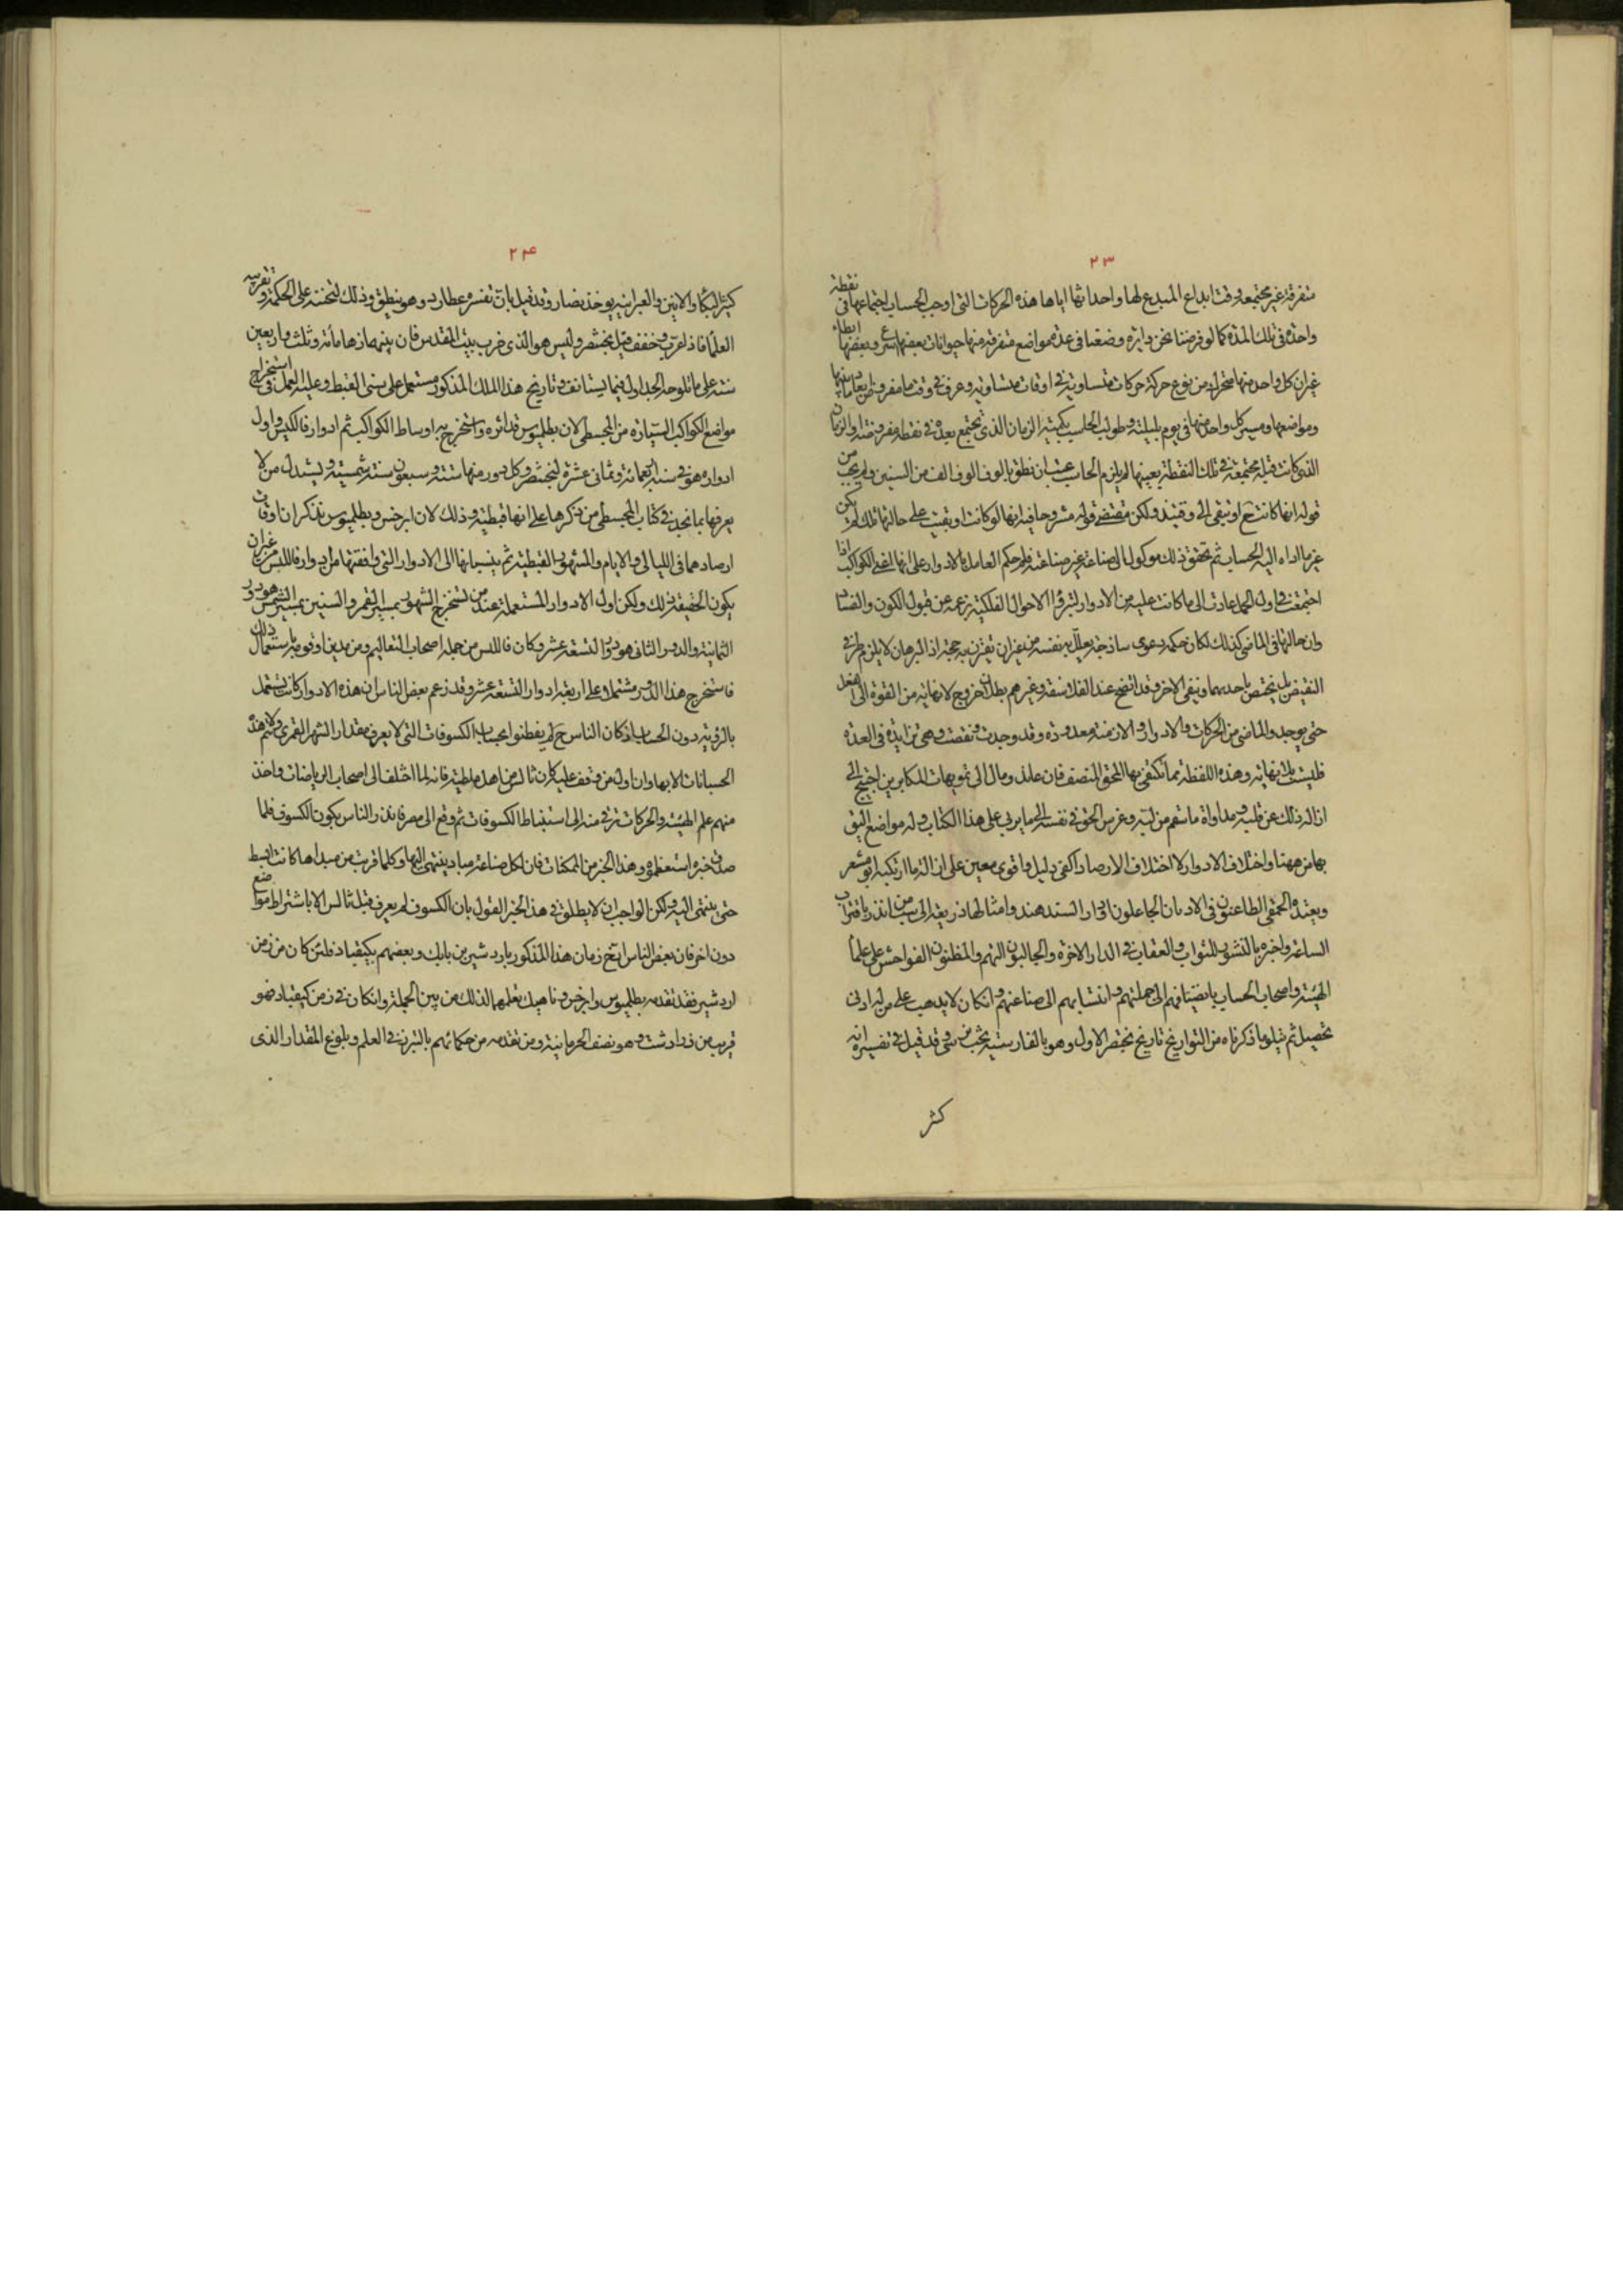 ٢٣
متفرقة غير مجتمعة وقت ابداع المبدع لها واحداثها اياها هذه الحركات التى اوجب الحساب اجتماعها فى نقطة
واحدة فى تلك المدة كما لو فرضنا نحن دايرة وضعنا فى عدة مواضع متفرقة منها حيوانات بعضها اسرع وبعضها ابطاء
غير ان كل واحد منها متحرك من نوع حركته حركات متساوية فى اوقات متساوية وعرف فى وقت ما مفروض ابعاد ما بينها
ومواضعها ومسير كل واحد منها فى يوم بليلته وطولب الحاسب بكمية الزمان الذى تجتمع بعده فى نقطة مفروضة او الزمان
الذى كانت قبله مجتمعة فى تلك النقطة بعينها لم يلزم الحاسب عتب ان نطق بالوف الوف الف من السنين ولم يجب من
قوله انها كانت ح او تبقى الى وقتئذ ولكن مقتضى قوله مشروحا فيه انها لو كانت او بقيت على حالتها تلك لم يكن
غير ما اداه اليه الحساب ثم تحقق ذلك موكول الى صناعة غير صناعته فلو حكم العامل بالادوار على انها اعنى الكواكب اذا
اجتمعت فى اول الحمل عادت الى ما كانت عليه من الادوار لتبرؤ الاحوال الفلكية بزعمه عن قبول الكون والفساد
وان حالتها فى الماضى كذلك لكان حكمه دعوى ساذجة يعلل به نفسه من غير ان تقترن به حجة اذ البرهان لا يلزم طرفى
النقيض بل يختص باحدهما وينفى الاخر وقد اتضح عند الفلاسفة وغيرهم بطلان خروج لا نهاية من القوة الى الفعل
حتى يوجد والماضى من الحركات والادوار والازمنة معدودة وقد وجدت ونقضت وهى متزايدة فى العدة
فليست بلا نهاية وهذه اللفظة مما تكتفى بها المحق المنصف فان عاند ومال الى تمويهات المكابرين احتيج الى
ازالة ذلك عن قلبه ومداواة ما سقم من لبه وغرس الحق فى نفسه الى ما يربى على هذا الكتاب وله مواضع اليق
بها من ههنا واختلاف الادوار لا اختلاف الارصاد اكفى دليل واقوى معين على ازالة ما ارتكبه ابو معشر
ويعتقده الحمقى الطاعنون فى الاديان الجاعلون ادوار السندهند وامثالها ذريعة الى سب من انذر باقتراب
الساعة واخبره بالنشور للثواب والعقاب فى الدار الاخرة والجالبون التهم والمظنون الفواحش على علماء
الهيئة واصحاب الحساب بانضيافهم الى جملتهم وانتسابهم الى صناعتهم وان كان لا يذهب على من له ادنى
تحصيل ثم يتلو ما ذكرناه من التواريخ تاريخ بختنصر الاول وهو بالفارسية بخت نرسى وقد قيل فى تفسيره انه
كثر
٢٤
كثير البكاء والانين وبالعبرانية بوخذ نصار وقد قيل بان تفسيره عطارد وهو ينطق وذلك لتحننه على الحكمة وتقريبه
العلماء فاذا عرب وخفف قيل بختنصر وليس هو الذى خرب بيت المقدس فان بينهما زهاء مائة وثلث واربعين
سنة على ما تلوحه الجداول فيما يستانف وتاريخ هذا الملك المذكور مستعمل على سنى القبط وعليه العمل فى استخراج
مواضع الكواكب السيارة من المجسطى لان بطلميوس قد اثره واستخرج به اوساط الكواكب ثم ادوار فاللبس واول
ادواره هو فى سنة اربعمائة وثمانى عشرة لبختنصر وكل دور منها ستة وسبعون سنة شمسية ويستدل من لا
يعرفها بما نجد فى كتاب المجسطى من ذكرها على انها قبطية وذلك لان ابرخس وبطلميوس تذكران اوقات
ارصادهما فى الليالى والايام والشهور القبطية ثم ينسبانها الى الادوار التى وافقتها من ادوار فاللبس من غير ان
يكون الحقيقة ذلك ولكن اول الادوار المستعملة عند من تستخرج الشهور بمسير القمر والسنين بمسير الشمس هو دور
الثمانية والدور الثانى هو دور التسعة عشر وكان فاللبس من جملة اصحاب التعاليم ومن يدين او قومه باستعمال ذلك
فاستخرج هذا الدور مشتملا على اربعة ادوار التسعة عشر وقد زعم بعض الناس ان هذه الادوار كانت تستعمل
بالرؤية دون الحساب اذ كان الناس ح لم يفطنوا لحساب الكسوفات التى لا يعرف مقدار الشهر القمرى ولا تتم هذه
الحسبانات الا بها وان اول من وقف عليه كان ثالس من اهل ملطية فانه لما اختلف الى اصحاب الرياضات واخذ
منهم علم الهيئة والحركات ترقى منه الى استنباط الكسوفات ثم وقع الى مصر فانذر الناس بكون الكسوف فلما
صدق خبره استعظموه وهذا الخبر من الممكنات فان لكل صناعة مباد ينتهى اليها وكلما قربت من مبداها كانت ابسط
حتى ينتهى اليه ولكن الواجب ان لا يطلق فى هذا الخبر القول بان الكسوف لم يعرف قبل ثالس الا باشتراط مواضع
دون اخر فان بعض الناس ارخ زمان هذا المذكور باردشير بن بابك وبعضهم بكيقباد فلئن كان من زمن
اردشير فقد تقدمه بطلميوس وابرخس وناهيك بعلمهما لذلك من بين الجملة وان كان فى زمن كيقباد فهو
قريب من زرادشت وهو نصف الحرمانية ومن تقدمه من حكمائهم بالتبرز فى العلم وبلوغ المقدار الذى